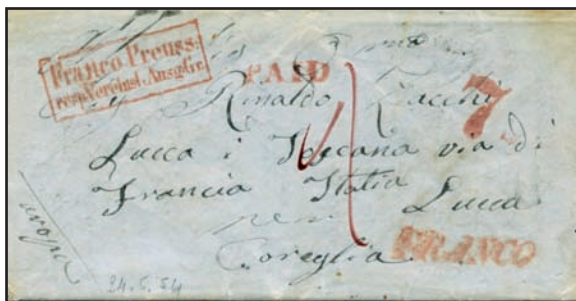 Franco Preuss:
resp. Vereinsl. Ausg. Gr.
PAID
7
Rinaldo Zacchi
Lucca i Toscana via di
Francia Italia Lucca
per
Coreglia
FRANCO
europa
24.5.54